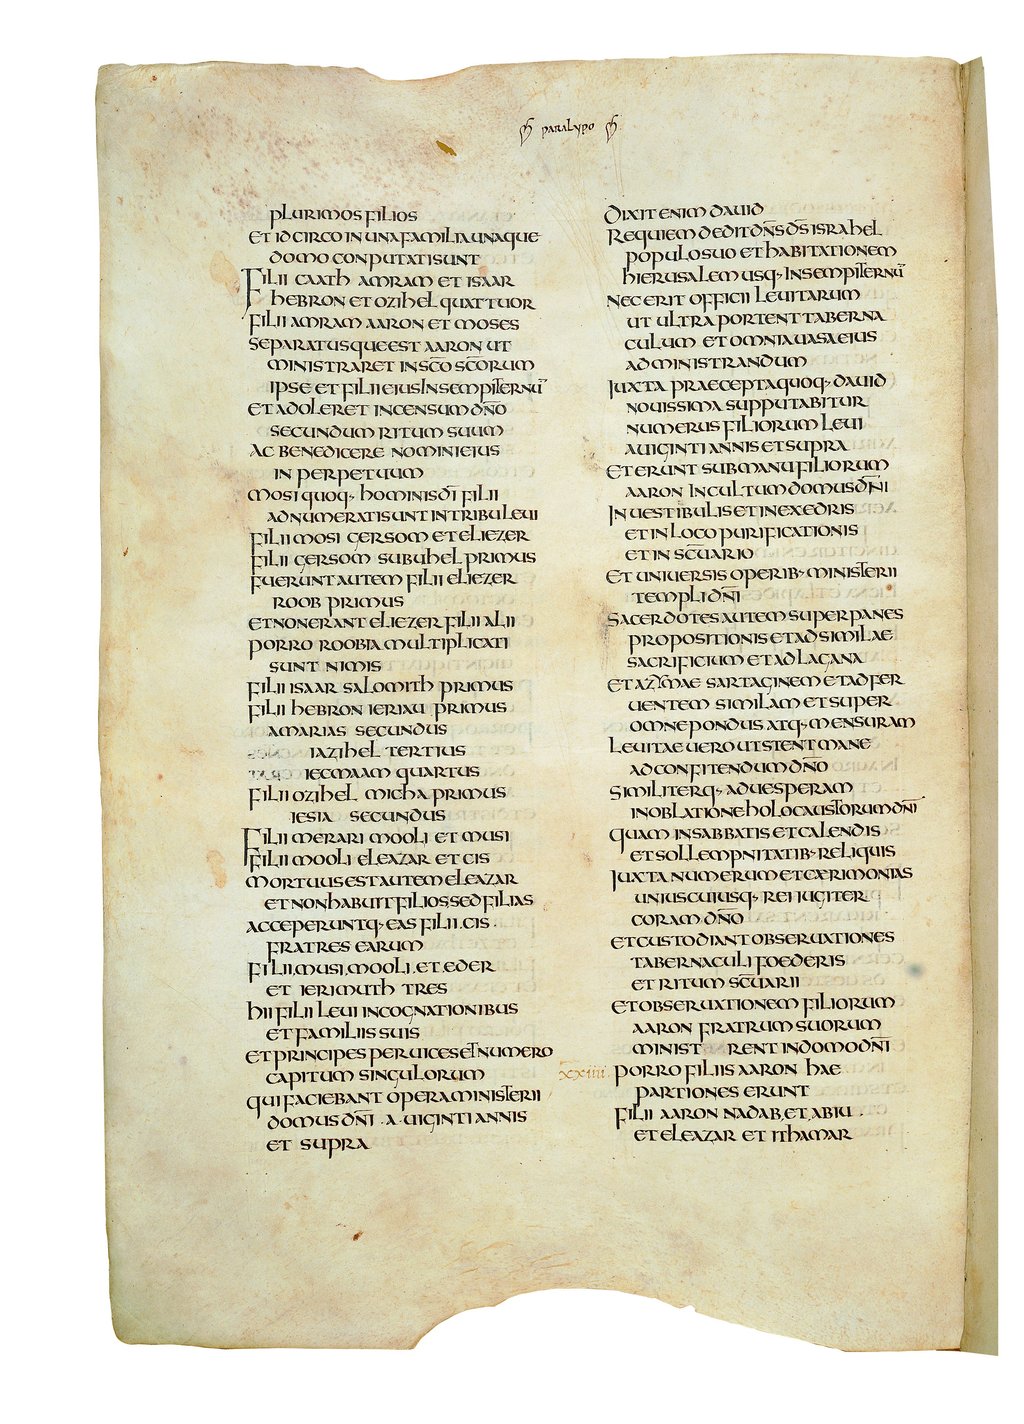 paralypo
plurimos filios
et idcirco in una familia unaque
domo conputati sunt
Filii caath amram et isaar
hebron et ozihel quattuor
filii amram aaron et moses
separatusque est aaron ut
ministraret in sc̄o sc̄orum
ipse et filii eius in sempiternū
et adoleret incensum dn̄o
secundum ritum suum
ac benedicere nomini eius
in perpetuum
mosi quoq· hominis dī filii
adnumerati sunt in tribu leui
filii mosi gersom et eliezer
filii gersom subuhel primus
fuerunt autem filii eliezer
roob primus
et non erant eliezer filii alii
porro roobia multiplicati
sunt nimis
filii isaar salomith primus
filii hebron ieriau primus
amarias secundus
iazihel tertius
iecmaam quartus
filii ozihel micha primus
iesia secundus
Filii merari mooli et musi
filii mooli eleazar et cis
mortuus est autem eleazar
et non habuit filios sed filias
acceperuntq· eas filii .cis.
fratres earum
filii.musi.mooli.et.eder
et ierimuth tres
hii filii leui in cognationibus
et familiis suis
et principes per uices et numero
capitum singulorum
qui faciebant opera ministerii
domus dn̄i .a.uiginti annis
et supra
Dixit enim dauid
Requiem dedit dn̄s ds̄ israhel
populo suo et habitationem
hierusalem usq· in sempiternū
nec erit officii leuitarum
ut ultra portent taberna
culum et omnia uasa eius
ad ministrandum
iuxta praecepta quoq· dauid
nouissima supputabitur
numerus filiorum leui
a uiginti annis et supra
et erunt sub manu filiorum
aaron in cultum domus dn̄i
in uestibulis et in exedris
et in loco purificationis
et in sc̄uario
et uniuersis operib· ministerii
templi dn̄i
sacerdotes autem super panes
propositionis et ad similae
sacrificium et ad lagana
et azymae sartaginem et ad fer
uentem similam et super
omne pondus atq· mensuram
leuitae uero ut stent mane
ad confitendum dn̄o
similiterq· ad uesperam
in oblatione holocaustorum dn̄i
quam in sabbatis et calendis
et sollempnitatib· reliquis
iuxta numerum et caerimonias
uniuscuiusq· rei iugiter
coram dn̄o
et custodiant obseruationes
tabernaculi foederis
et ritum sc̄uarii
et obseruationem filiorum
aaron fratrum suorum
minist rent in domo dn̄i
xxiiii. porro filiis aaron hae
partiones erunt
filii aaron nadab,et,abiu .
et eleazar et ithamar